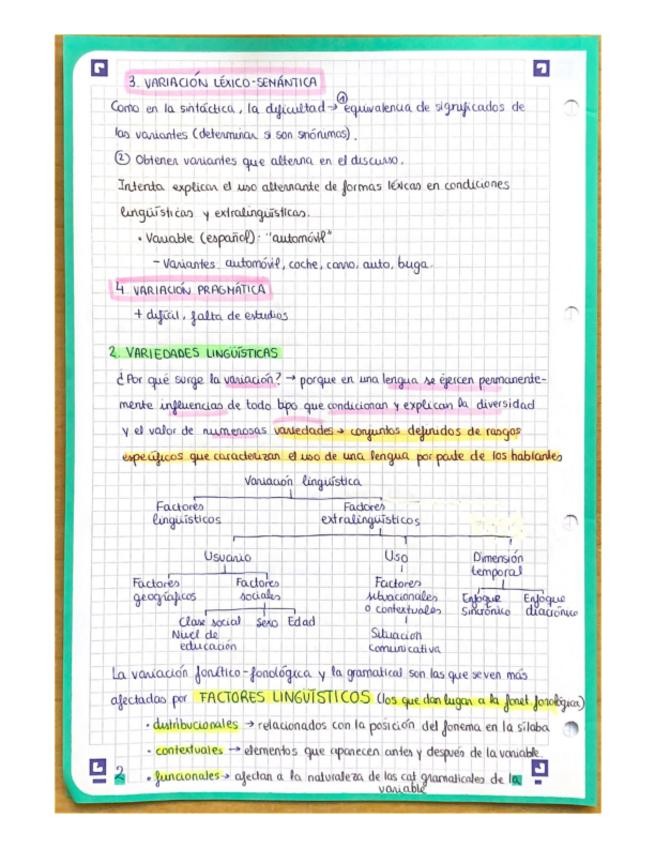 3. VARIACIÓN LÉXICO-SEMÁNTICA
Como en la sintáctica, la dificultad → ① equivalencia de significados de
las variantes (determinar si son sinónimas).
② Obtener variantes que alterna en el discurso.
Intenta explicar el uso alternante de formas léxicas en condiciones
lingüísticas y extralingüísticas.
• Variable (español): "automóvil"
- Variantes: automóvil, coche, carro, auto, buga.
4. VARIACIÓN PRAGMÁTICA
+ difícil, falta de estudios
2. VARIEDADES LINGÜÍSTICAS
¿Por qué surge la variación? → porque en una lengua se ejercen permanente-
mente influencias de todo tipo que condicionan y explican la diversidad
y el valor de numerosas variedades → conjuntos definidos de rasgos
específicos que caracterizan el uso de una lengua por parte de los hablantes
Variación lingüística
Factores lingüísticos
Factores extralingüísticos
Usuario
Uso
Dimensión temporal
Factores geográficos
Factores sociales
Factores situacionales o contextuales
Enfoque sincrónico
Enfoque diacrónico
Clase social
Sexo
Edad
Nivel de educación
Situación comunicativa
La variación fonético-fonológica y la gramatical son las que se ven más
afectadas por FACTORES LINGÜÍSTICOS (los que dan lugar a la fonet. fonológica)
• distribucionales → relacionados con la posición del fonema en la sílaba
• contextuales → elementos que aparecen antes y después de la variable.
• funcionales → afectan a la naturaleza de las cat gramaticales de la
variable
2